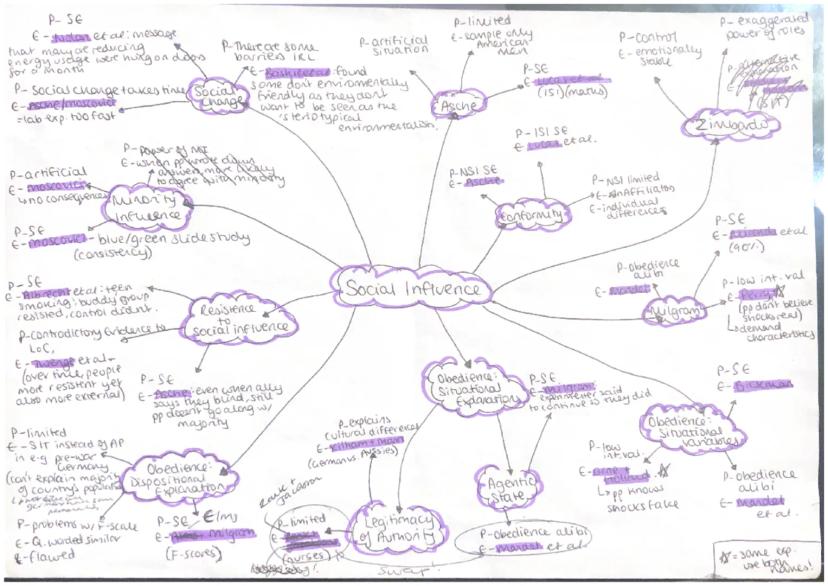 P- SE
E- Nolan et al: message
that many are reducing
energy usage were hung on doors
for a month
P- Social change takes time
E- Asche/moscovici
=lab exp. too fast
Social
change
P- There are some
barriers IRL
E- Bashir et al found
some don't environmentally
friendly as they don't
want to be seen as the
'stereotypical
environmentalism.
P-artificial
situation
P-limited
E-sample only
American
men
P-SE
E- Lucas et al
(ISI)(maths)
Asche
P- control
E -emotionally
stable
P- exaggerated
power of roles
(SIT)
Zimbardo
P- power of MI
E- when pp wrote down
answers, more likely
to agree with minority
P-artificial
E- moscovici
↳ no consequences
P- SE
E- moscovici - blue/green slide study
(consistency)
Minority
Influence
P- ISI SE
E- Lucas et al.
P-NSI SE
E- Asche
P- NSI limited
E- nAffiliators
E-individual
differences
Conformity
Social Influence
P- SE
E- Albrecht et al: teen
smoking: buddy group
resisted, control didn't.
P-contradictory Evidence to
LoC,
E- Twenge et al-
(over time, people
more resistent yet
also more external)
P- SE
E- Asche: even when ally
says they blind, still
pp doesn't go along w/
majority
Resistence
to
social influence
P-SE
et al
(90%)
P-obedience
alibi
E- Mandel
P-low int. val
E- Perry ☆
(pp don't believe
shocks real)
↳ demand
characteristics
Milgram
Obedience:
Situational
Explanation
P- SE
E- milgram:
experimenter said
to continue so they did
P- SE
E- Bickman
Obedience:
Situational
Variables
P-low
int. val
E- orne +
Holland ☆
↳ pp knows
shocks fake
P- obedience
alibi
E- Mandel
et al.
P-limited
E- SIT instead of AP
in e.g pre-war
Germany
(can't explain majority
of country's population
P-problems w/ F-scale
E- Q. worded similar
E- flawed
Obedience:
Dispositional
Explanation
P- SE
E- milgram
(F-scores)
P-explains
cultural differences
E- Kilham + Mann
(Germans v Aussies)
P-limited
(nurses)
Legitimacy
of Authority
Agentic
state
P-obedience alibi
E- et al
swap!
☆ = same exp.
use both
names!